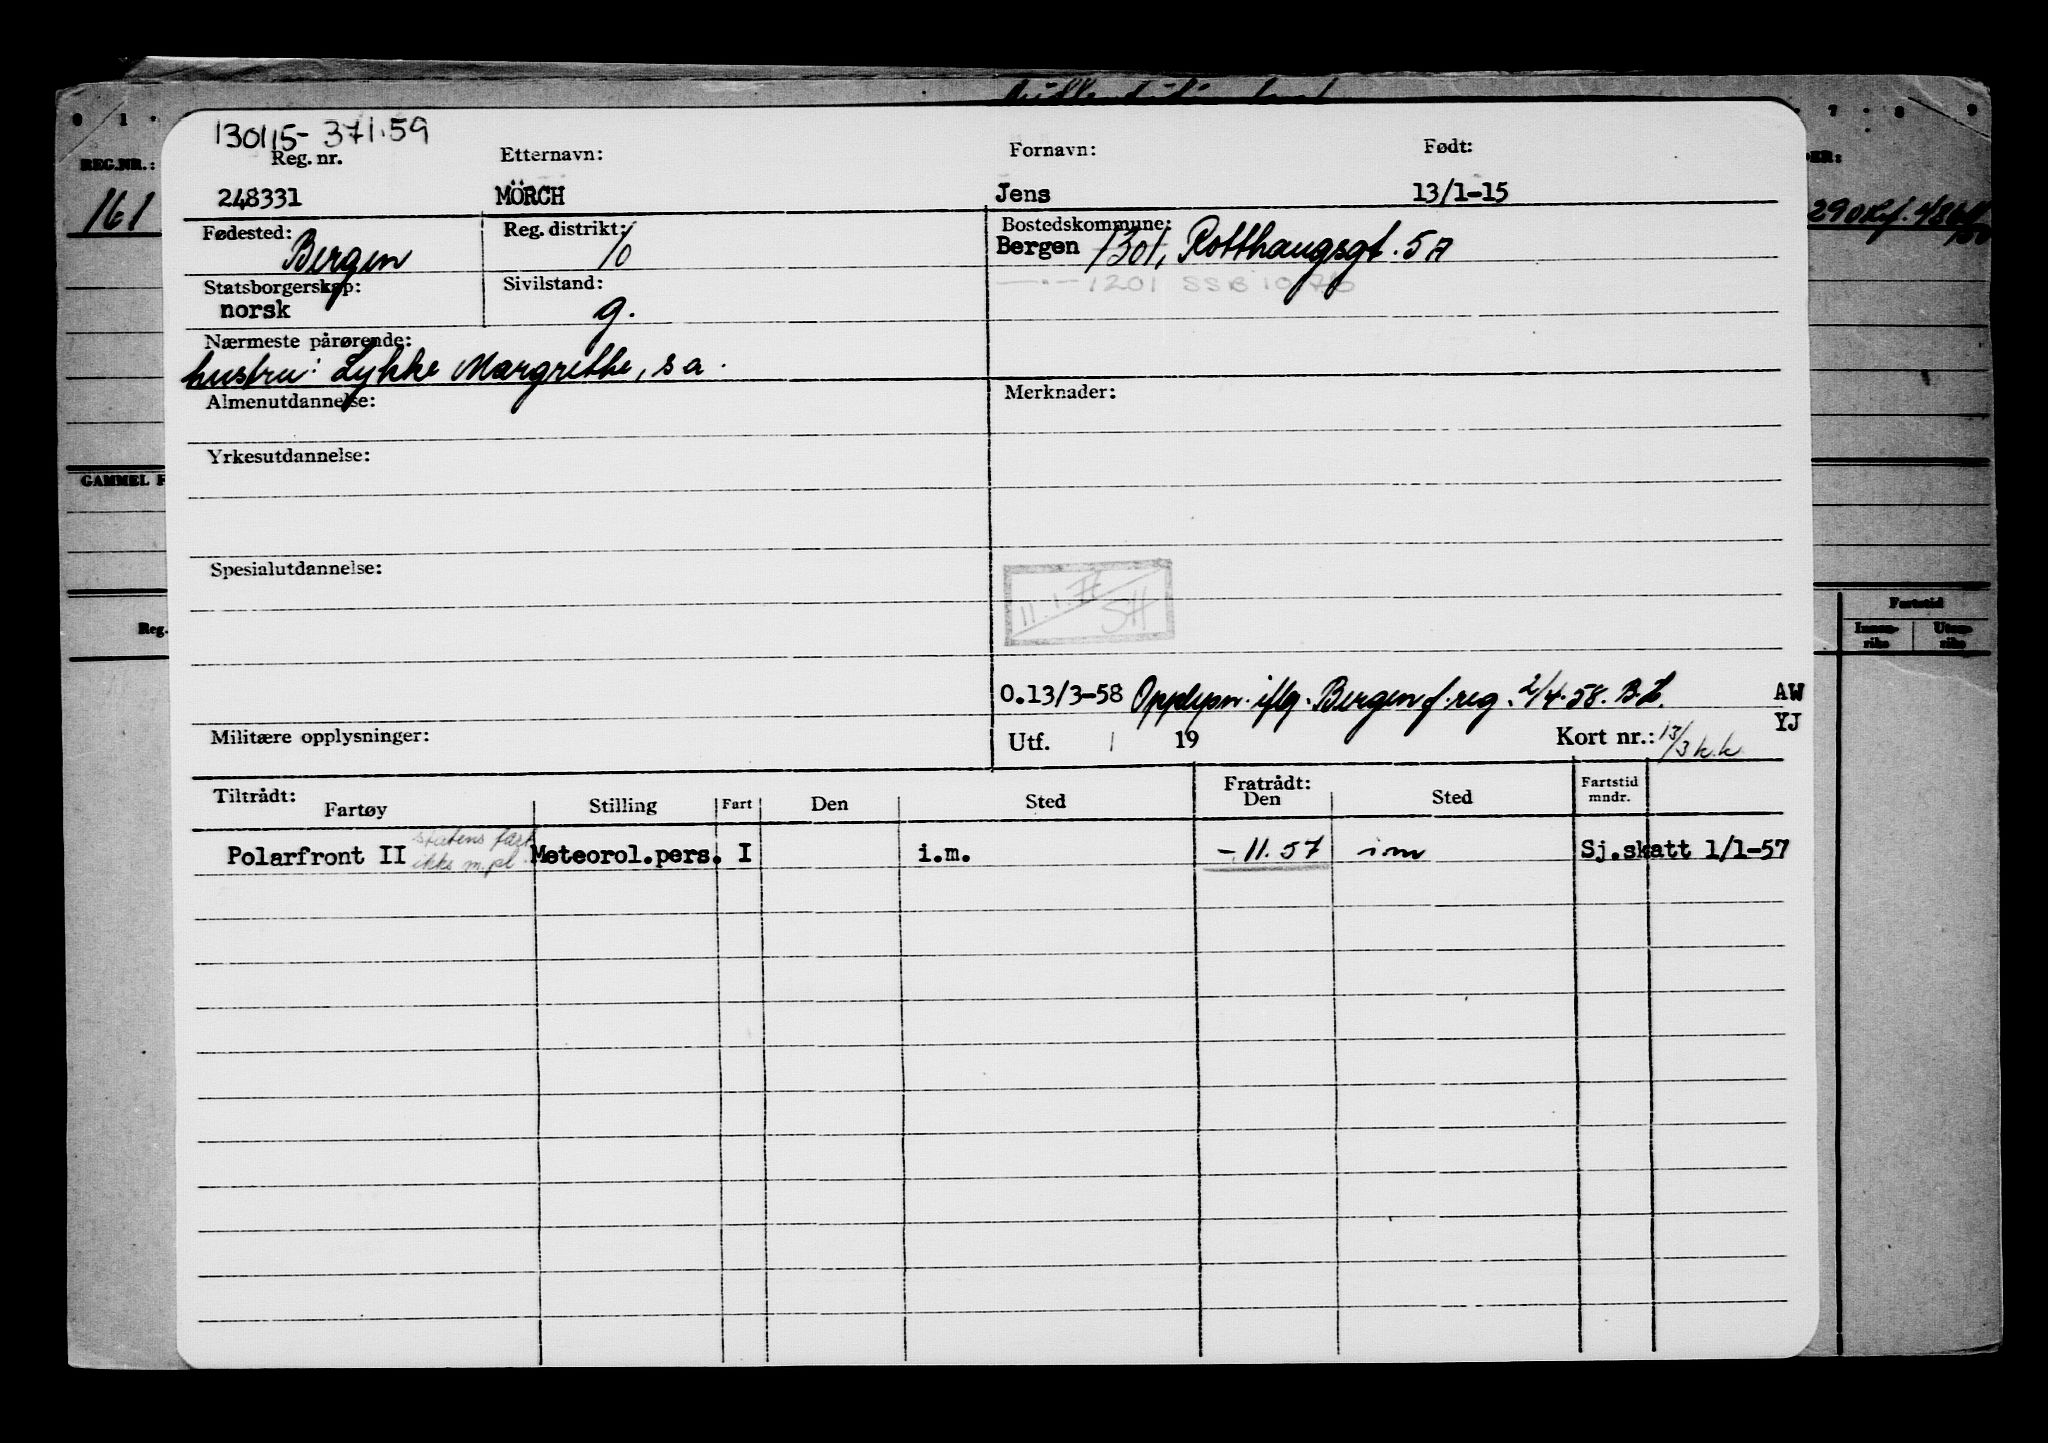 0 1 . 7 . 8 . 9
130115-371.59
REG.NR.:
Reg. nr. Etternavn: Fornavn: Født:
161
248331 MÖRCH Jens 13/1-15
Fødested: Reg. distrikt: Bostedskommune:
Bergen 10 Bergen 1301, Rotthaugsgt. 5A
Statsborgerskap: Sivilstand: 1201 SSB 10/76
norsk g.
Nærmeste pårørende:
hustru: Lykke Margrethe, s a.
Almenutdannelse: Merknader:
Yrkesutdannelse:
GAMMEL F
Spesialutdannelse:
Fartstid
Reg. Innen- Uten-
riks riks
0.13/3-58 Opplysn. iflg. Bergen f. reg. 2/4-58. AW
YJ
Militære opplysninger: Utf. / 19 Kort nr.: 13/3 k.k.
Tiltrådt: Fratrådt: Fartstid
Fartøy Stilling Fart Den Sted Den Sted mndr.
statens fart.
Polarfront II ikke m.pl. Meteorol.pers. I i.m. - 11.57 im Sj.skatt 1/1-57